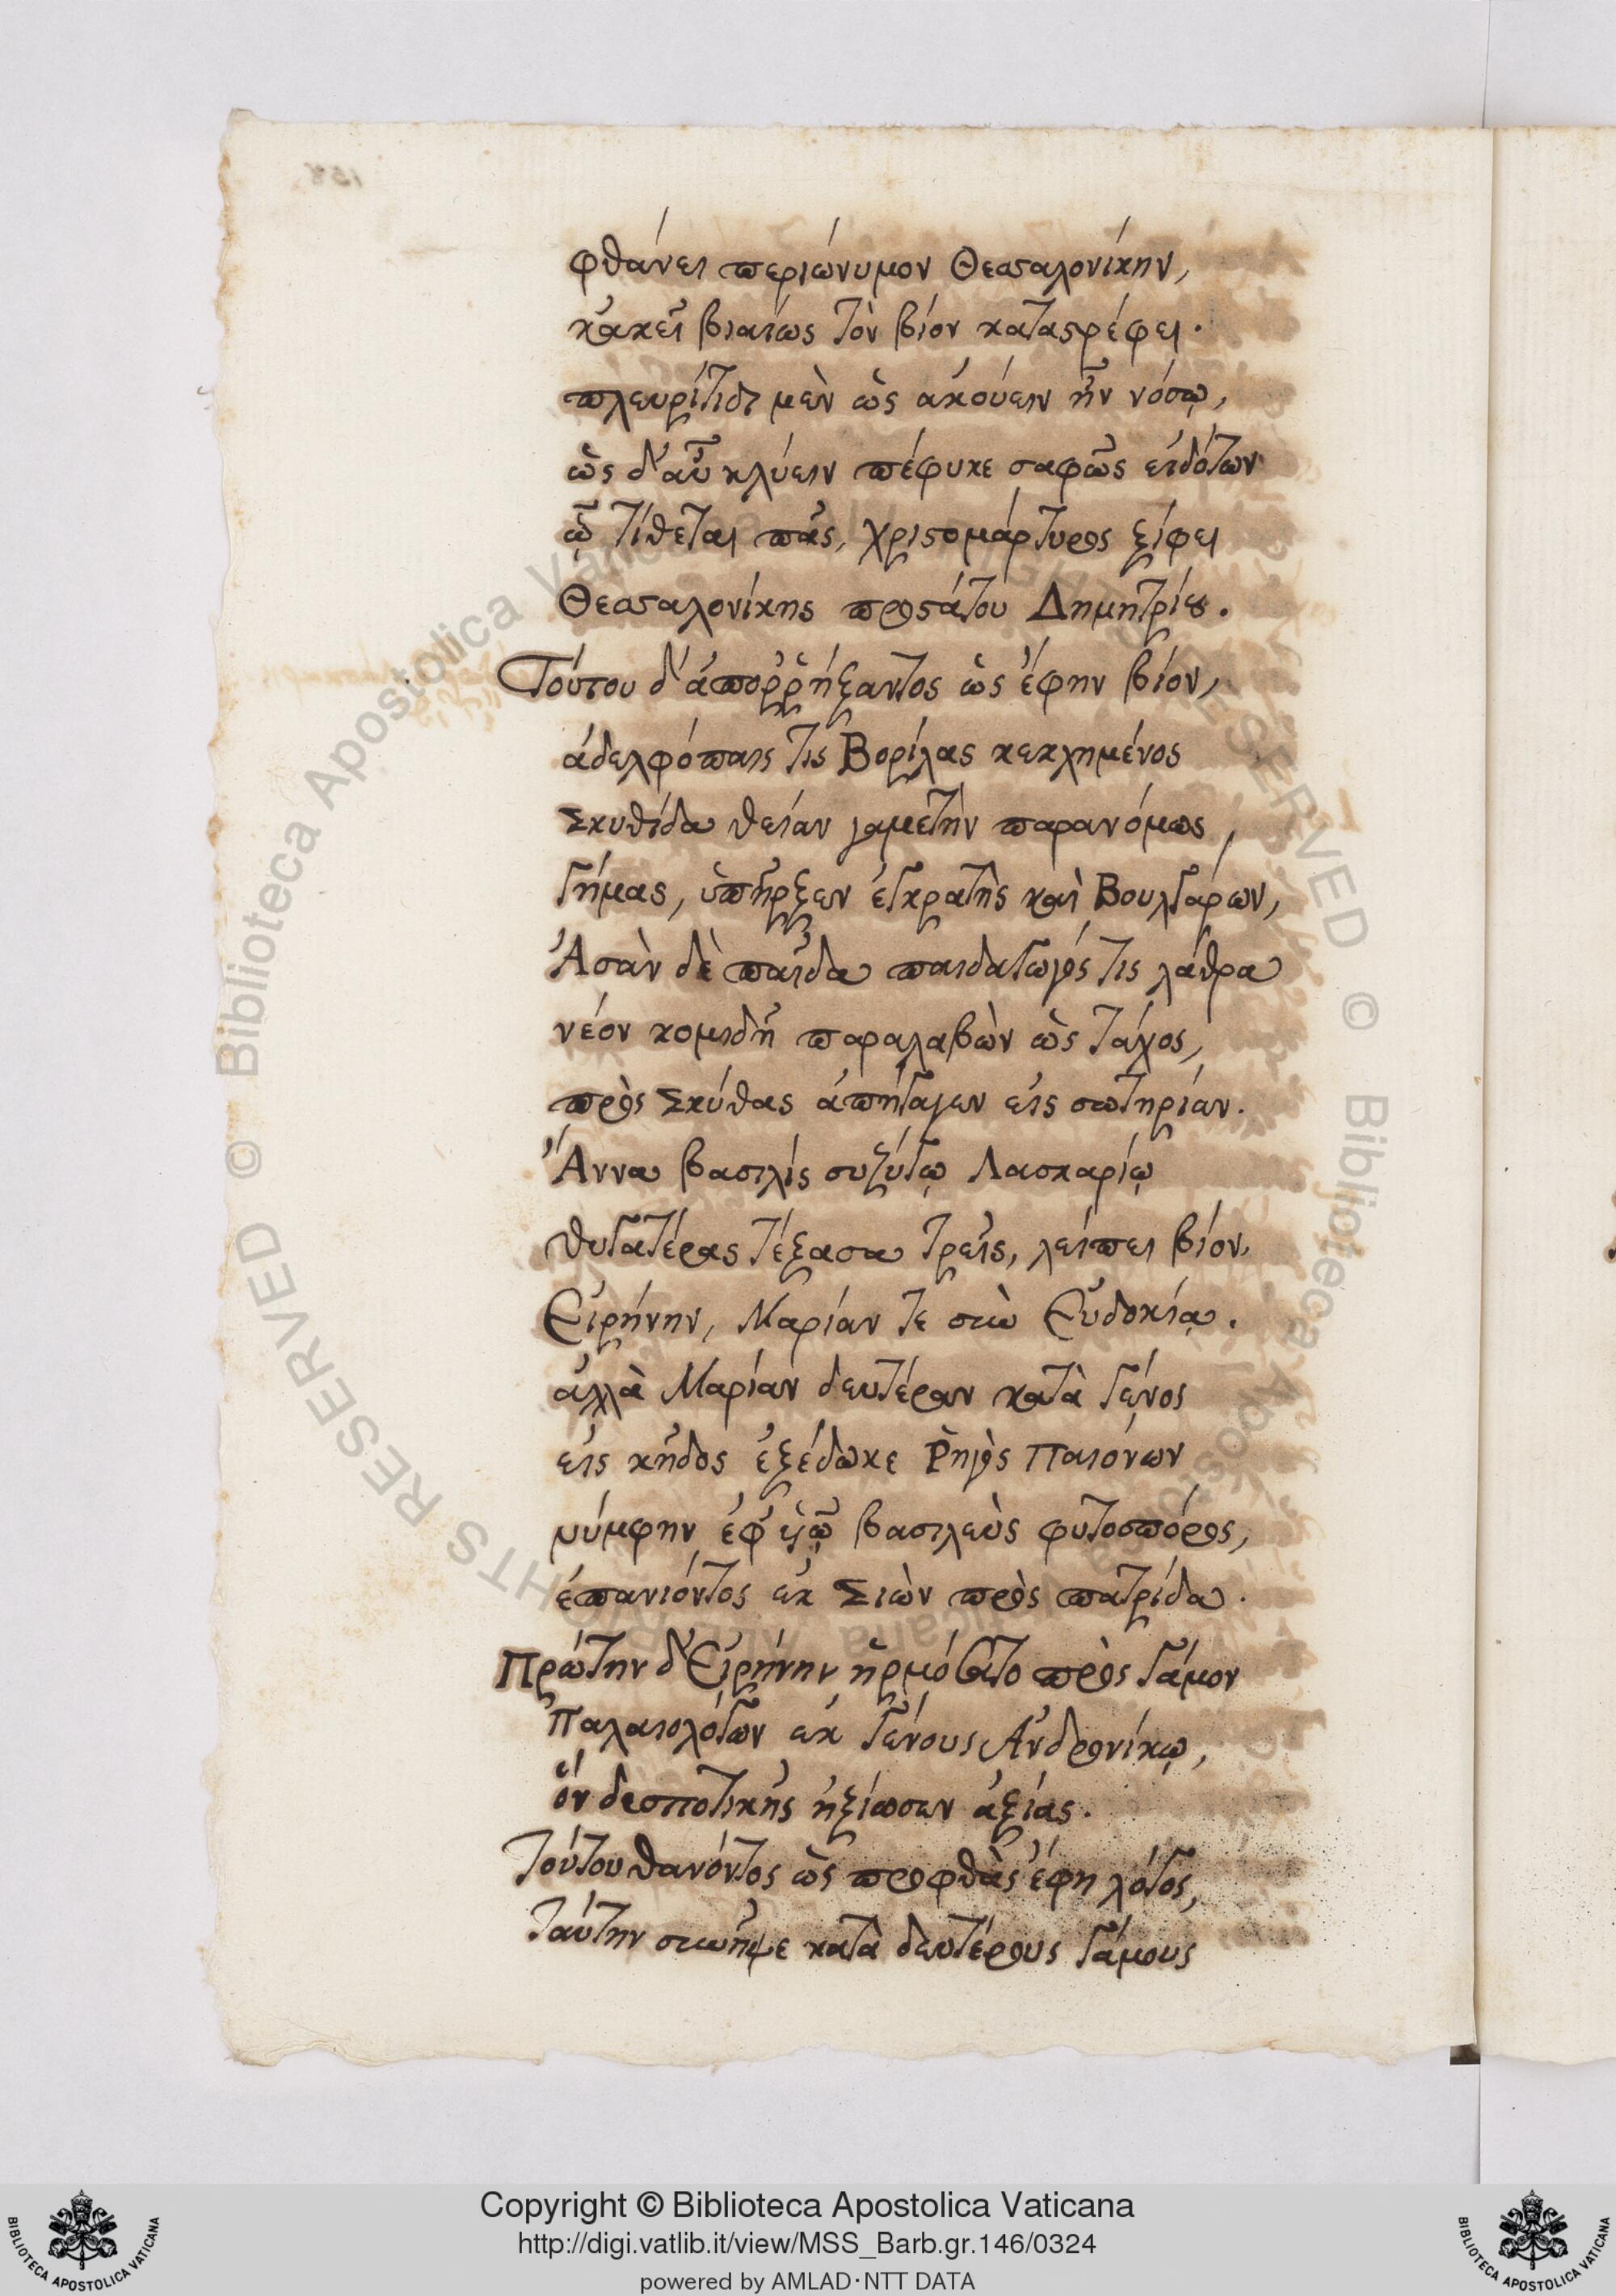 φθάνει περιώνυμον Θεσσαλονίκην,
κᾀκεῖ βιαίως τὸν βίον καταστρέφει.
πλευρίτιδι μὲν ὡς ἀκούειν ἦν νόσῳ,
ὡς δ' αὖ κλύειν πέφυκε σαφῶς εἰδότων
ᾧ τίθεται πᾶς, χριστομάρτυρος ξίφει
Θεσσαλονίκης προστάτου Δημητρίου.
Τούτου δ' ἀποῤῥήξαντος ὡς ἔφην βίον,
ἀδελφόπαις τις Βορίλας κεκλημένος
Σκυθίδα θείαν γαμετὴν παρανόμως,
γήμας, ὑπῆρξεν ἐγκρατὴς καὶ Βουλγάρων,
Ἀσὰν δὲ παῖδα παιδαγωγός τις λάθρα
νέον κομιδῆ παραλαβὼν ὡς τάχος,
πρὸς Σκύθας ἀπήγαγεν εἰς σωτηρίαν.
Ἄννα βασιλὶς συζύγῳ Λασκαρίῳ
θυγατέρας τέξασα τρεῖς, λείπει βίον,
Εἰρήνην, Μαρίαν τε σὺν Εὐδοκίᾳ.
ἀλλὰ Μαρίαν δευτέραν κατὰ γένος
εἰς κῆδος ἐξέδωκε Ῥηγὸς Παιόνων
νύμφην ἐφ' υἱῷ βασιλεὺς φυτοσπόρος,
ἐπανιόντος ἐκ Σιὼν πρὸς πατρίδα.
Πρώτην δ' Εἰρήνην ἡρμόσατο πρὸς γάμον
Παλαιολόγων ἐκ γένους Ἀνδρονίκῳ,
ὃν δεσποτικῆς ἠξίωσεν ἀξίας.
Τούτου θανόντος ὡς προφθὰς ἔφη λόγος,
ταύτην συνῆψε κατὰ δευτέρους γάμους
Copyright © Biblioteca Apostolica Vaticana
http://digi.vatlib.it/view/MSS_Barb.gr.146/0324
powered by AMLAD·NTT DATA